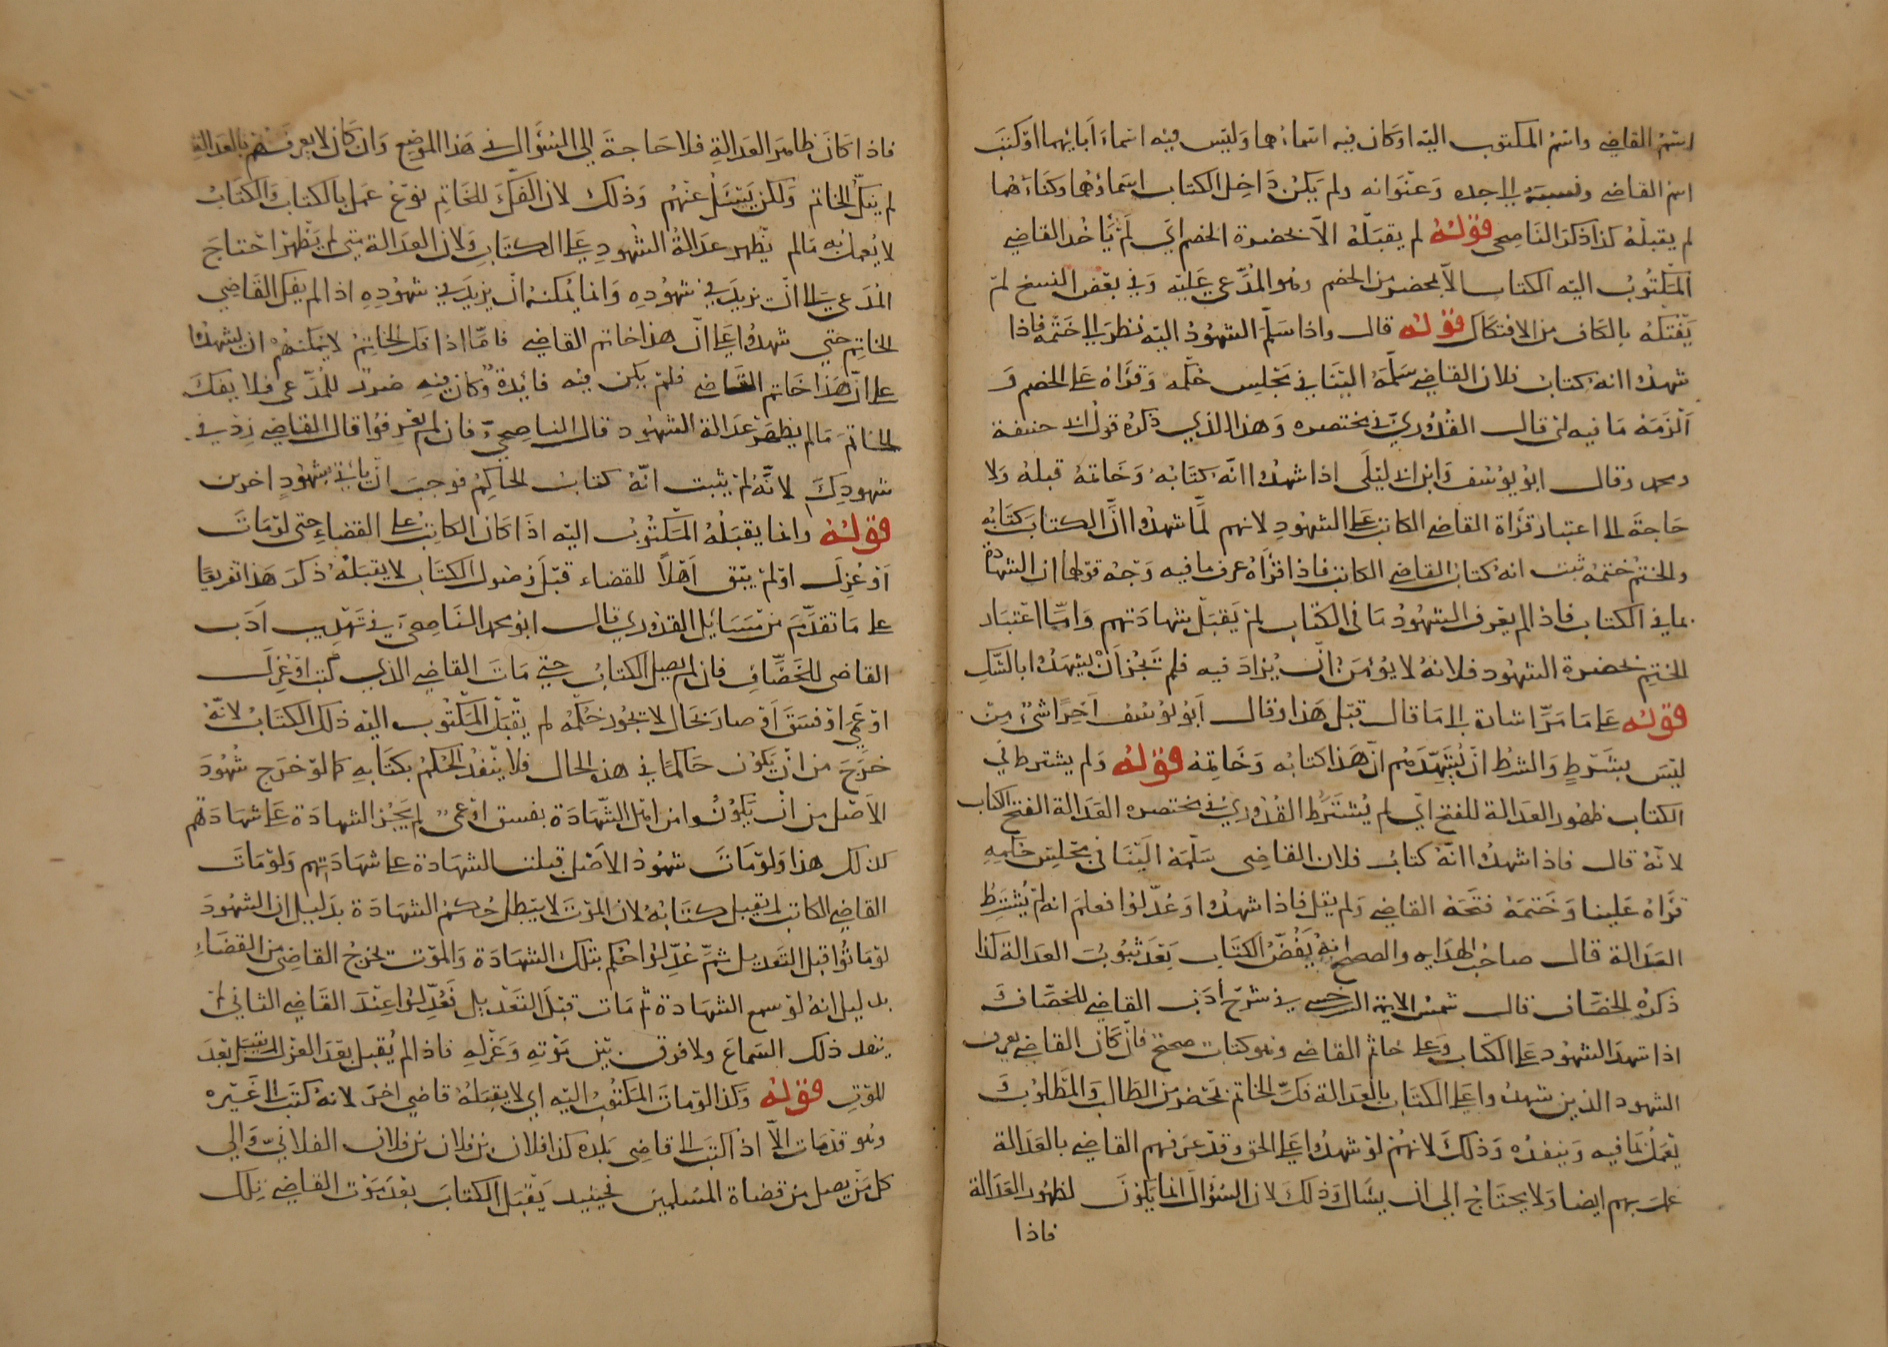 اسم القاضي واسم المكتوب اليه او كان فيه اسماءهما وليس فيه اسماء ابائهما او كتب
اسم القاضي ونسبه الى جده وعنوانه ولم يكن داخل الكتاب اسماؤهما وكناءهما
لم يقبله كذا ذكر الناصحي قوله لم يقبله الا بحضرة الخصم اي لم ياخذ القاضي
المكتوب اليه الكتاب الا بمحضر من الخصم وهو المدعي عليه وفي بعض النسخ لم
يفتكه بالكاف من الافتكاك قوله قال واذا سلم الشهود اليه نظر الى ختمه فاذا
شهدوا انه كتاب فلان القاضي سلمه الينا في مجلس حكمه وقراه على الخصم و
الزمه ما فيه قال القدوري في مختصره وهذا الذي ذكره قول ابي حنيفة
ومحمد وقال ابو يوسف وابن ابي ليلى اذا شهدوا انه كتابه وخاتمه قبله ولا
حاجة الى اعتبار قراة القاضي الكاتب على الشهود لانهم لما شهدوا ان الكتاب كتابه
والختم ختمه ثبت انه كتاب القاضي الكاتب فاذا قراه عرف ما فيه وجه قولهما ان الشهادة
بما في الكتاب فاذا لم يعرف الشهود ما في الكتاب لم يقبل شهادتهم واما اعتبار
الختم بحضرة الشهود فلانه لا يؤمن ان يزاد فيه فلم تجز ان يشهدوا بالشك
قوله على ما مر اشارة الى ما قال قبل هذا وقال ابو يوسف اخرا شيء من
ليس بشرط والشرط ان يشهدهم ان هذا كتابه وخاتمه قوله ولم يشترط في
الكتاب ظهور العدالة للفتح اي لم يشترط القدوري في مختصره العدالة الفتح الكتاب
لانه قال فاذا شهدوا انه كتاب فلان القاضي سلمه الينا في مجلس حكمه
قراه علينا وختمه فتحه القاضي ولم يقل فاذا شهدوا وعدلوا فعلم انه لم يشترط
العدالة قال صاحب الهداية والصحيح انه يفض الكتاب بعد ثبوت العدالة كذا
ذكره الخصاف قال شمس الايمة السرخسي في شرح ادب القاضي للخصاف
اذا شهد الشهود على الكتاب وعلى خاتم القاضي وهو كتاب صحيح فان كان القاضي يعرف
الشهود الذين شهدوا على الكتاب بالعدالة فك الخاتم بمحضر من الطالب والمطلوب
يعمل بما فيه وينفذه وذلك لانهم لو شهدوا على الحق وقد عرفهم القاضي بالعدالة
عمل بهم ايضا ولا يحتاج الى ان يسال وذلك لان السؤال انما يكون لظهور العدالة
فاذا
فاذا كان ظاهر العدالة فلا حاجة الى السؤال في هذا الموضع وان كان لا يعرفهم بالعدالة
لم يفك الخاتم ولكن يسئل عنهم وذلك لان الفك للخاتم نوع عمل بالكتاب والكتاب
لا يعمل به مالم يظهر عدالة الشهود على الكتاب ولان العدالة متى لم يظهر احتاج
المدعي الى ان يزيد في شهوده وانما يمكنه ان يزيد في شهوده اذا لم يفك القاضي
الخاتم حتى شهدوا على ان هذا خاتم القاضي فاما اذا فك الخاتم لا يمكنهم ان يشهدوا
على ان هذا خاتم القاضي فلم يكن فيه فائدة وكان فيه ضرر للمدعي فلا يفك
الخاتم مالم يظهر عدالة الشهود قال الناصحي فان لم يعرفوا قال القاضي زد في
شهودك لانه لم يثبت انه كتاب الحاكم فوجب ان ياتي بشهود اخرين
قوله وانما يقبله المكتوب اليه اذا كان الكاتب على القضاء حتى لو مات
او عزل او لم يبق اهلا للقضاء قبل وصول الكتاب لا يقبله ذكر هذا تفريعا
على ما تقدم من مسائل القدوري قال ابو محمد الناصحي في تهذيب ادب
القاضي للخصاف فان لم يصل الكتاب حتى مات القاضي الذي كتب او عزل
او عمي او فسق او صار بحال لا تجوز حكمه لم يقبل المكتوب اليه ذلك الكتاب لانه
خرج من ان يكون حاكما في هذه الحال فلا ينفذ الحكم بكتابه كما لو خرج شهود
الاصل من ان يكونوا من اهل الشهادة بفسق او عمى لم يجز الشهادة على شهادتهم
كذلك هذا ولو مات شهود الاصل قبلت الشهادة على شهادتهم ولو مات
القاضي الكاتب لم تقبل كتابه لان الموت لا يبطل حكم الشهادة بدليل ان الشهود
لو ماتوا قبل التعديل ثم عدلوا حكم بتلك الشهادة والموت يخرج القاضي من القضاء
بدليل انه لو سمع الشهادة ثم مات قبل التعديل فعدلوا عند القاضي الثاني لم
ينفذ ذلك السماع ولا فرق بين موته وعزله فاذا لم يقبل بعد العزل لم يقبل بعد
الموت قوله وكذا لو مات المكتوب اليه اي لا يقبله قاضي اخر لانه كتب الى غيره
وهو قد مات الا اذا كتب الى قاضي بلده كذا فلان بن فلان بن فلان الفلاني والى
كل من يصل من قضاة المسلمين فحينئذ يقبل الكتاب بعد موت القاضي تلك